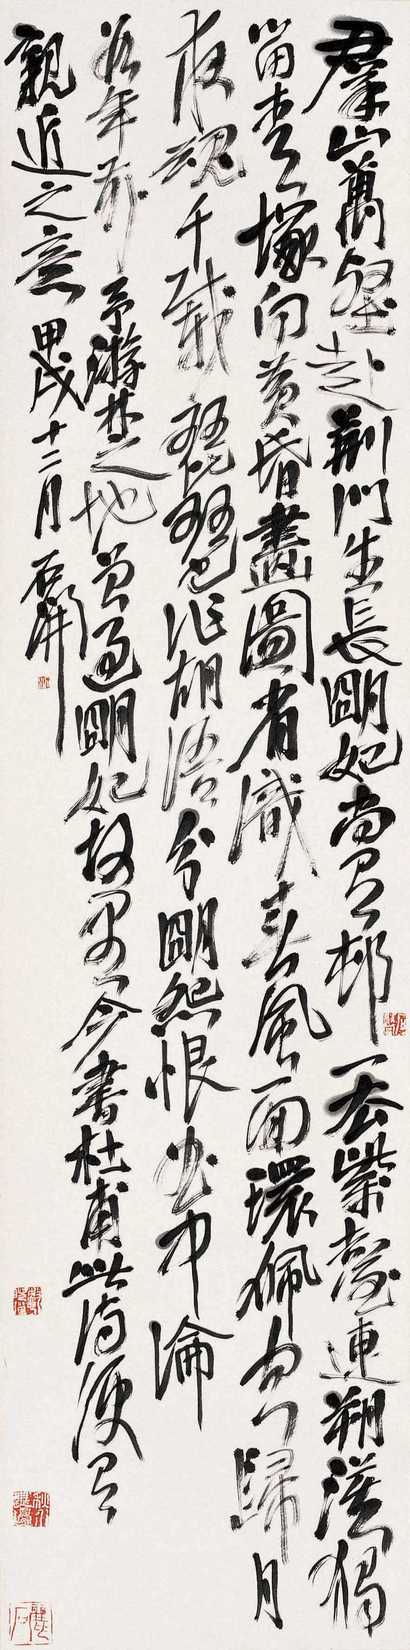 羣山萬壑赴荊門生長朙妃尚有邨一去紫臺連朔漠獨
留青塚向黃昏畫圖省識春風面環佩空歸月
夜魂千載琵琶作胡語分朙怨恨曲中論
年前予游楚之地曾過朙妃故里今書杜甫此詩便有
親近之意甲戌十二月石開